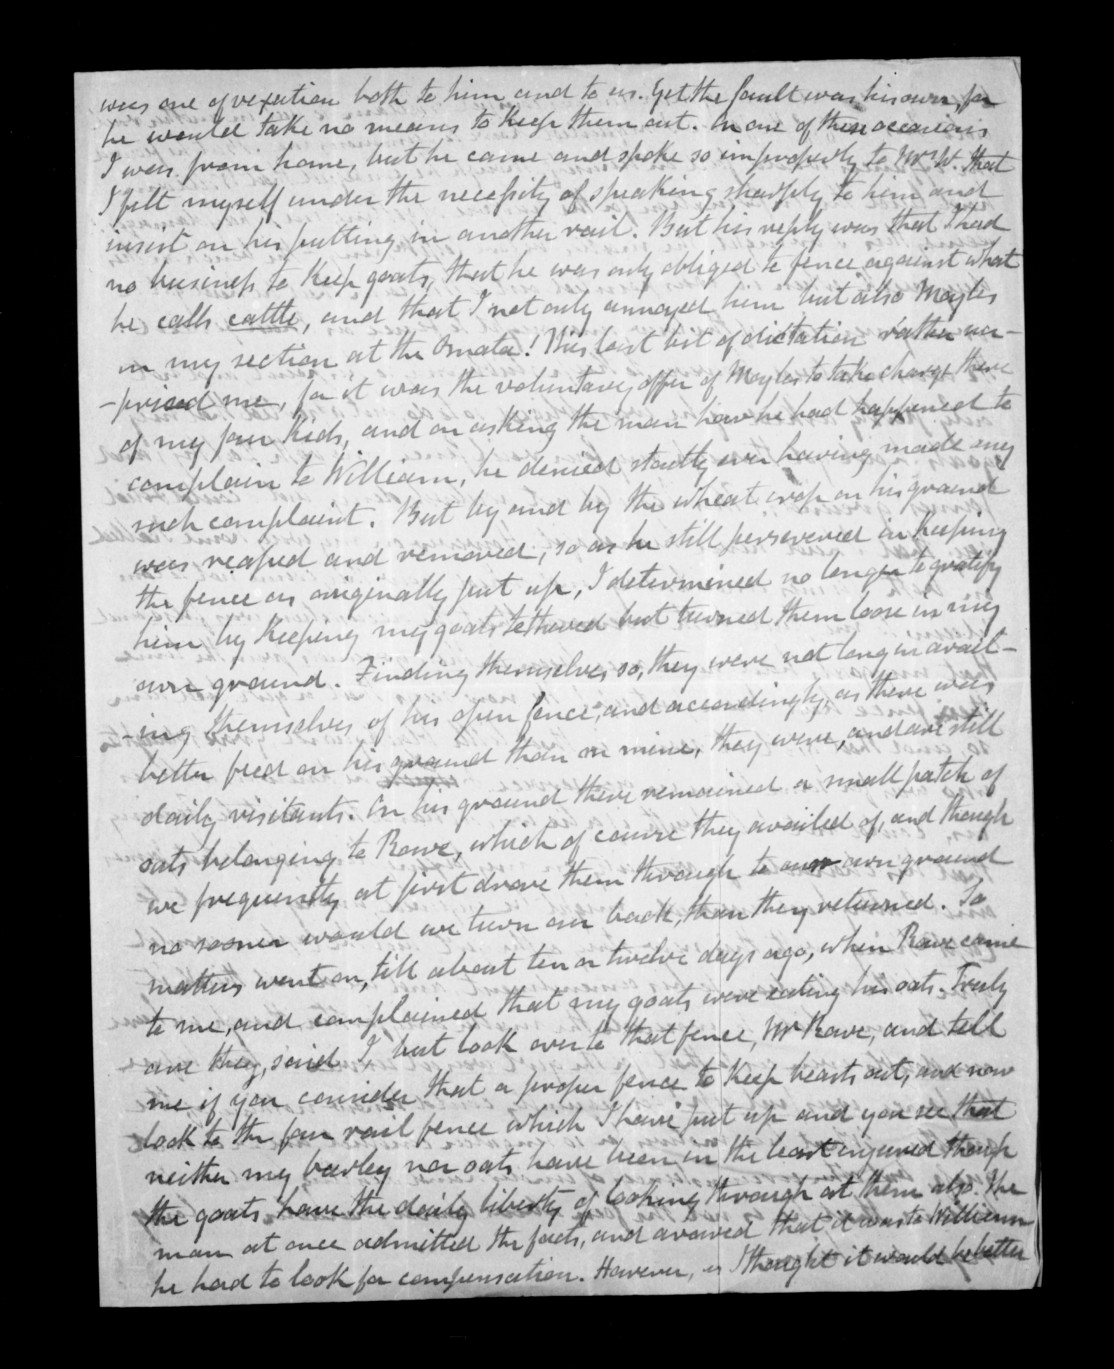 was one of vexation both to him and to us. Yet the fault was his own for
he would take no means to keep them out. On one of these occasions
I was from home, but he came and spoke so improperly to Mrs W. that
I felt myself under the necessity of speaking sharply to him and
insist on his putting in another rail. But his reply was that I had
no business to keep goats, that he was only obliged to fence against what
he calls cattle, and that I not only annoyed him but also Moyles
in my section at the Omata! This last bit of dictation rather sur-
-prised me, for it was the voluntary offer of Moyles to take charge there
of my four kids, and on asking the man how he had happened to
complain to William, he denied stoutly ever having made any
such complaint. But by and by the wheat crop on his ground
was reaped and removed, so as he still persevered in keeping
the fence as originally put up, I determined no longer to gratify
him by keeping my goats tethered but turned them loose in my
own ground. Finding themselves so, they were not long in avail-
-ing themselves of his open fence, and accordingly, as there was
better feed on his ground than on mine, they were, and are still
daily visitants. On his ground there remained a small patch of
oats belonging to Rowe, which of course they availed of, and though
we frequently at first drove them through to our own ground
no sooner would we turn our back, than they returned. So
matters went on, till about ten or twelve days ago, when Rowe came
to me, and complained that my goats were eating his oats. Truly
are they, said I, but look over to that fence, Mr Rowe, and tell
me if you consider that a proper fence to keep beasts out, and now
look to the four rail fence which I have put up and you see that
neither my barley nor oats have been in the least injured though
the goats have the daily liberty of looking through at them also. The
man at once admitted the facts, and avowed that it was to William
he had to look for compensation. However, as I thought it would be better